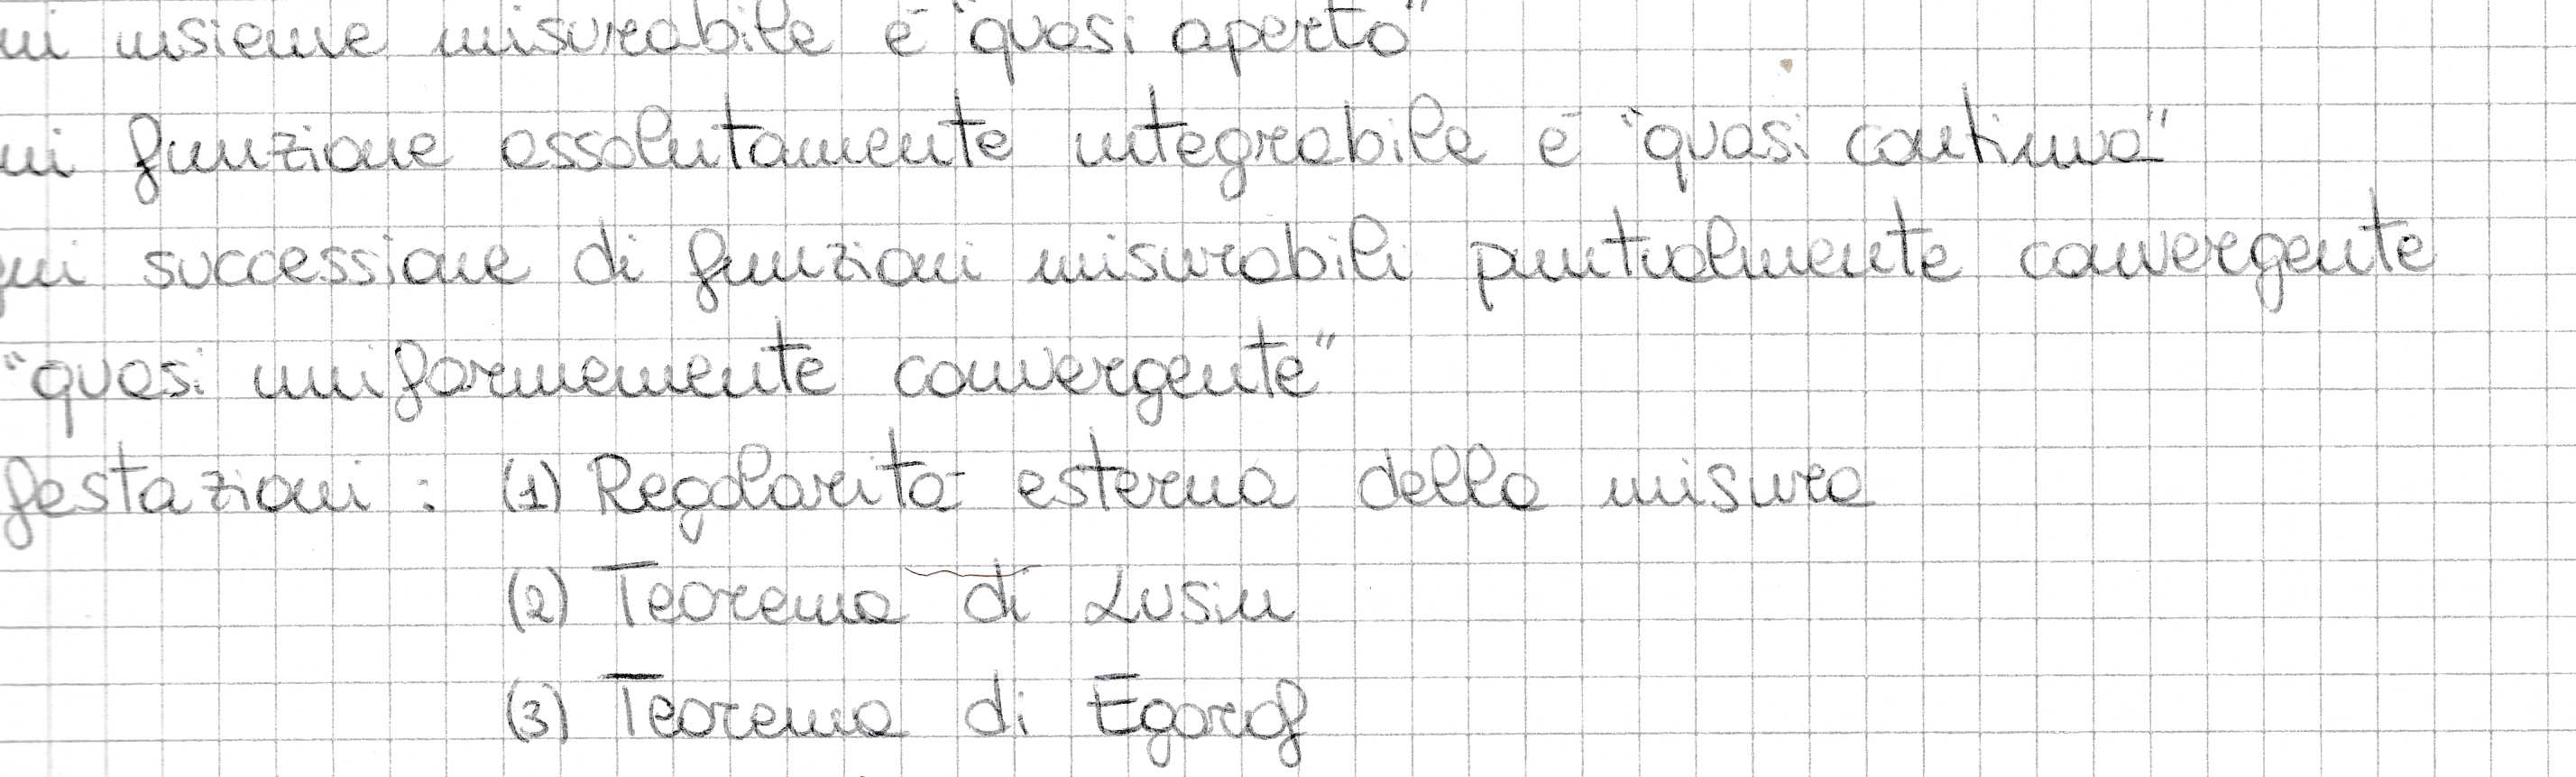 ni insieme misurabile è "quasi aperto"
ni funzione assolutamente integrabile è "quasi continua"
gni successione di funzioni misurabili puntualmente convergente
"quasi uniformemente convergente"
festazioni : (1) Regolarità esterna della misura
(2) Teorema di Lusin
(3) Teorema di Egorof